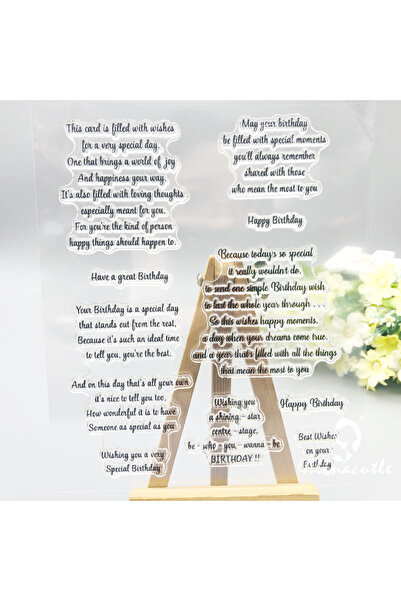 This card is filled with wishes
for a very special day.
One that brings a world of joy
And happiness your way.
It's also filled with loving thoughts
especially meant for you.
For you're the kind of person
happy things should happen to.
Have a great Birthday
Your Birthday is a special day
that stands out from the rest,
Because it's such an ideal time
to tell you, you're the best.
And on this day that's all your own
it's nice to tell you too,
How wonderful it is to have
Someone as special as you
Wishing you a very
Special Birthday
May your birthday
be filled with special moments
you'll always remember
shared with those
who mean the most to you
Happy Birthday
Because today's so special
it really wouldn't do,
to send one simple Birthday wish
to last the whole year through . . . .
So this wishes happy moments,
a day when your dreams come true,
and a year that's filled with all the things
that mean the most to you
Wishing you
a shining - star
centre - stage,
be - who - you - wanna - be
BIRTHDAY !!
Happy Birthday
Best Wishes
on your
Birthday